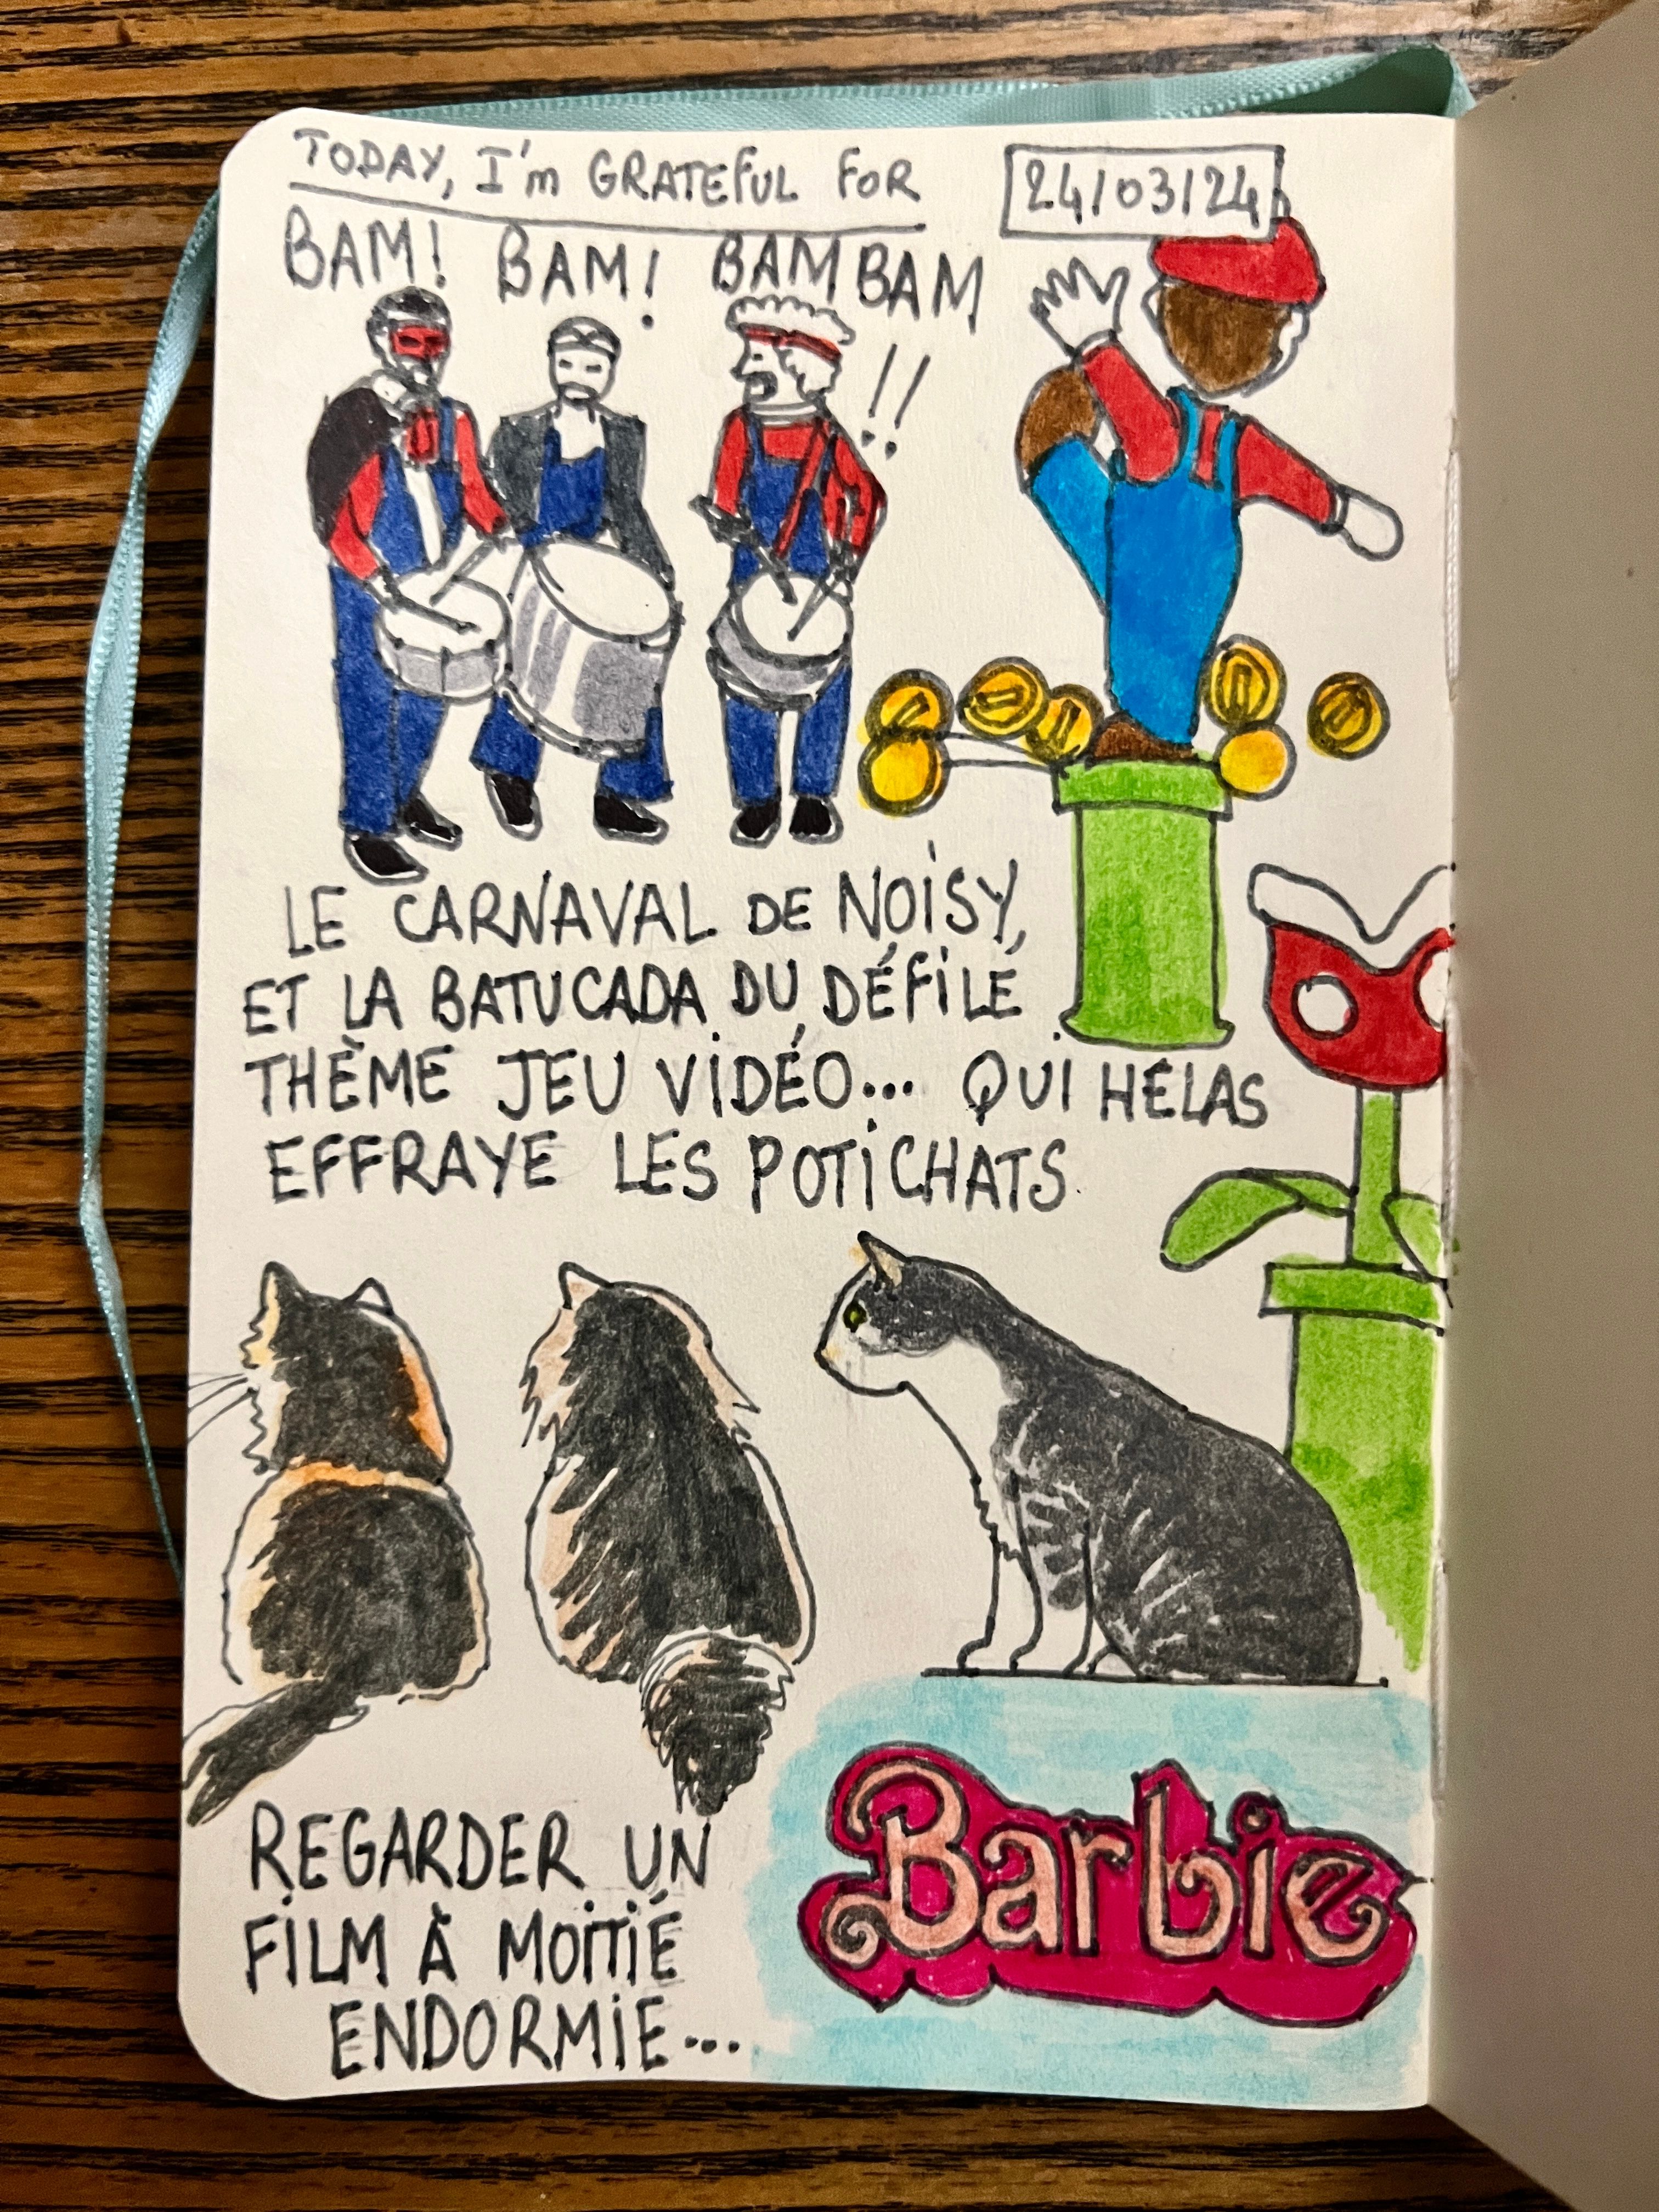 TODAY, I'm GRATEFUL FOR
24/03/24
BAM! BAM! BAM BAM !!
LE CARNAVAL DE NOISY,
ET LA BATUCADA DU DÉFILÉ
THÈME JEU VIDÉO... QUI HÉLAS
EFFRAYE LES POTICHATS.
REGARDER UN
FILM À MOITIÉ
ENDORMIE...
Barbie